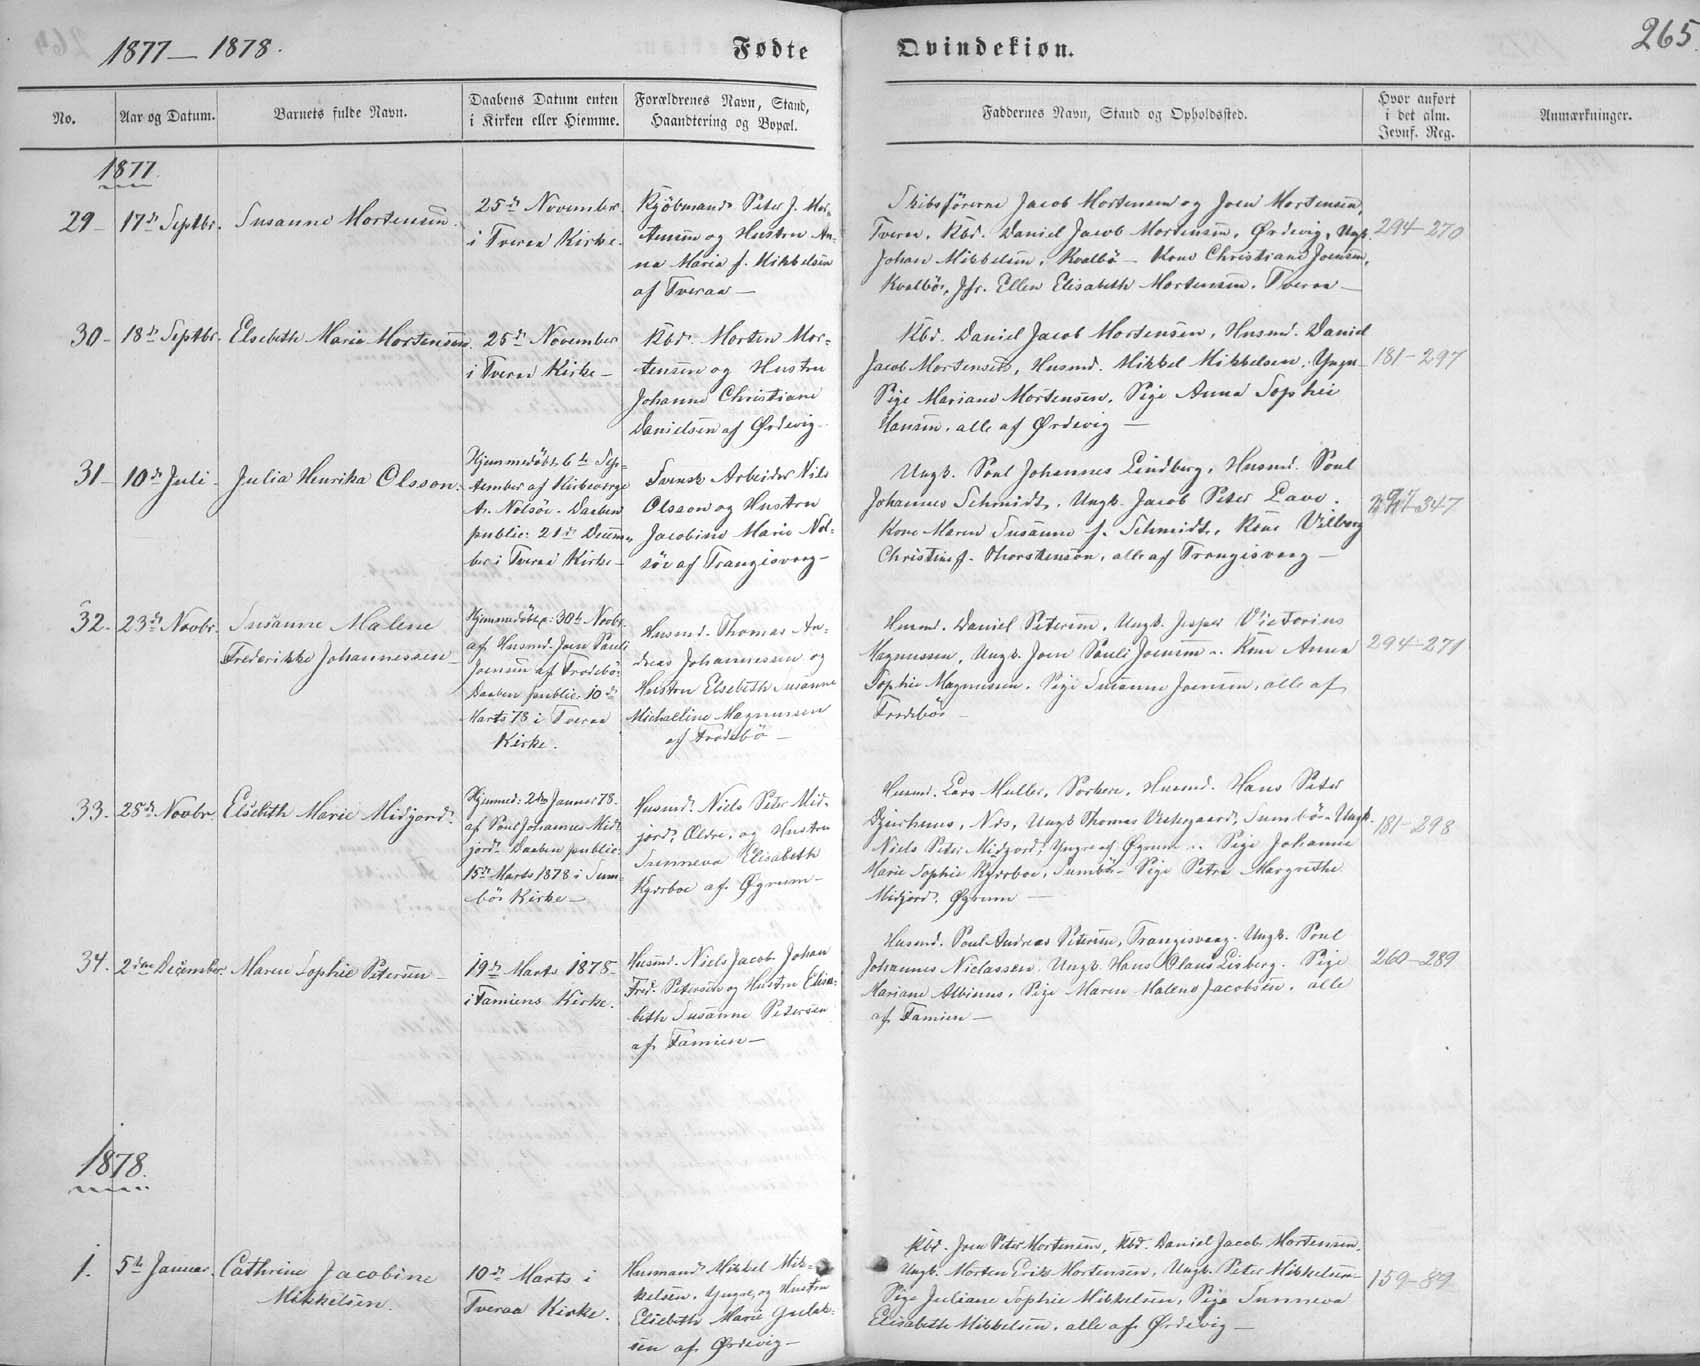 1877 — 1878.
Fødte
Qvindekiøn.
265.
No.
Aar og Datum.
Barnets fulde Navn.
Daabens Datum enten
i Kirken eller Hiemme.
Forældrenes Navn, Stand,
Haandtering og Bopæl.
Faddernes Navn, Stand og Opholdssted.
Hvor anført
i det alm.
Jevnf. Reg.
Anmærkninger.
1877.
29 –
17de Septbr.
Susanne Mortensen.
25de November
i Tveraa Kirke.
Kjöbmand Peter J. Mor-
tensen og Hustru An-
na Maria f. Mikkelsen
af Tveraa —
Skibsförerne Jacob Mortensen og Joen Mortensen,
Tveraa, Kbd. Daniel Jacob Mortensen, Ørdevig, Ungk.
Johan Mikkelsen, Kvalbö – Kone Christiane Joensen,
Kvalbö, Jfr. Ellen Elisabeth Mortensen, Tveraa —
294–270
30 –
18de Septbr.
Elsebeth Marie Mortensen
25de November
i Tveraa Kirke –
Kbd. Morten Mor-
tensen og Hustru
Johanne Christiane
Danielsen af Ørdevig –
Kbd. Daniel Jacob Mortensen, Husmd. Daniel
Jacob Mortensen, Husmd. Mikkel Mikkelsen, Yngre
Pige Mariane Mortensen, Pige Anna Sophie
Hansen, alle af Ørdevig —
181–297
31 –
10de Juli –
Julia Henrika Olsson.
Hjemmedöbt 6te Sep-
tember af Kirkeværge
Nolsöe. Daaben
public: 21de Decem-
ber i Tveraa Kirke –
Svensk Arbeider Nils
Olsson og Hustru
Jacobine Marie Nol-
söe af Trangisvaag –
Ungk. Poul Johannes Lindberg, Husmd. Poul
Johannes Schmidt, Ungk. Jacob Peter Lave.
Kone Maren Susanne f. Schmidt, Kone Vilborg
Christine f. Thorstensön, alle af Trangisvaag —
347
32.
23de Novbr.
Susanne Malene
Frederikke Johannessen –
Hjemmedöbt 30te Novbr.
af Husmd. Joen Pauli
Joensen af Frodebö
Daaben public. 10de
Marts 78 i Tveraa
Kirke.
Husmd. Thomas An-
dreas Johannessen og
Hustru Elsebeth Susanne
Micheline Magnussen
af Frodebö —
Husmd. Daniel Petersen, Ungk. Jesper Victorius
Magnussen, Ungk. Joen Pauli Joensen – Kone Anna
Sophie Magnussen, Pige Susanne Joensen, alle af
Frodebö —
294–271
33.
25de Novbr.
Elsebeth Marie Midjord.
Hjemmed: 2den Januar 78.
af Poul Johannes Mid-
jord. Daaben public:
15de Marts 1878 i Sum-
bö Kirke –
Husmd. Niels Peter Mid-
jord, Ældre, og Hustru
Sunneva Elisabeth
Kjærboe af Øgrum –
Husmd. Lars Muller, Porkere, Husmd. Hans Peter
Djurhuus, Nes, Ungk Thomas Vestergaard, Sumbö – Ungk.
Niels Peter Midjord, Yngre af Øgrum – Pige Johanne
Marie Sophie Kjærboe, Sumbö – Pige Petra Margrethe
Midjord, Øgrum —
181–298
34.
2den December.
Maren Sophie Petersen –
19de Marts 1878
i Famiens Kirke.
Husmd. Niels Jacob Johan
Fred. Petersen og Hustru Elisa-
beth Susanne Petersen
af Famien —
Husmd. Poul Andreas Petersen, Trangisvaag. Ungk. Poul
Johannes Niclassen, Ungk. Hans Claus Lisberg. Pige
Mariane Albinus, Pige Maren Malene Jacobsen, alle
af Famien —
260–289
1878.
1.
5te Januar.
Cathrine Jacobine
Mikkelsen.
10de Marts i
Tveraa Kirke.
Husmand Mikkel Mik-
kelsen, Yngre, og Hustru
Elsebeth Marie Gulak-
sen af Ørdevig —
Kbd. Joen Peter Mortensen, Kbd. Daniel Jacob Mortensen,
Ungk. Morten Erik Mortensen, Ungk. Peter Mikkelsen –
Pige Juliane Sophie Mikkelsen, Pige Sunneva
Elisabeth Mikkelsen, alle af Ørdevig —
159–89